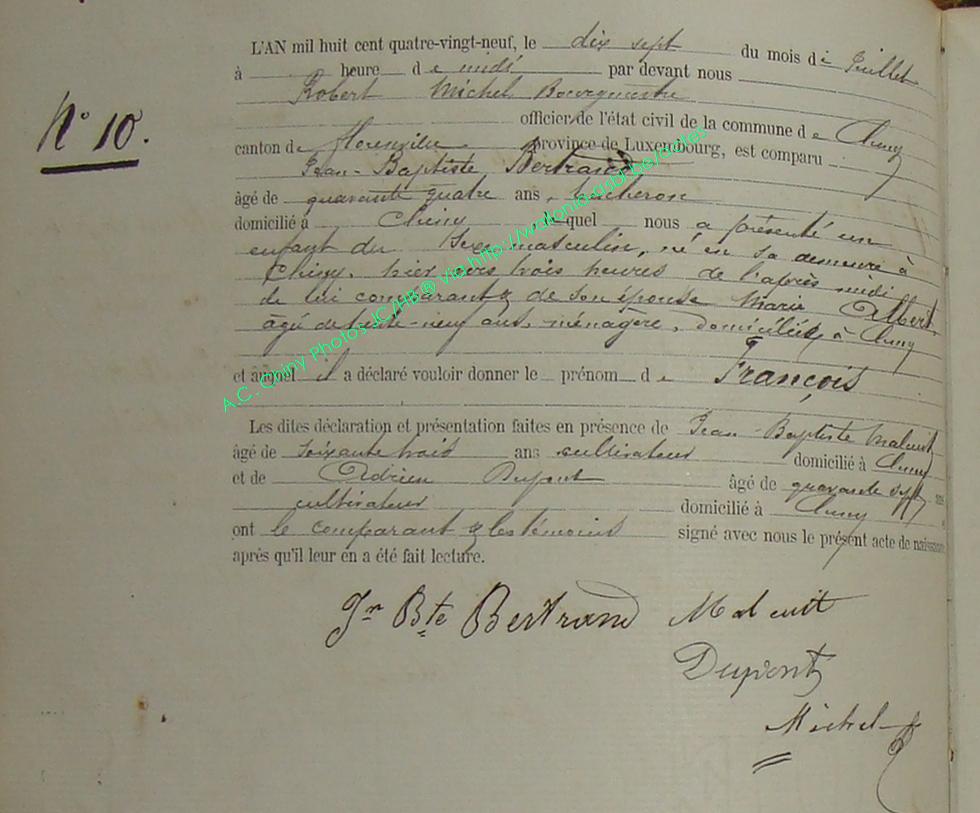 N° 10.
L'AN mil huit cent quatre-vingt-neuf, le dix sept du mois de Juillet
à heure de midi par devant nous
Robert Michel Bourgmestre
officier de l'état civil de la commune de Chiny
canton de Florenville province de Luxembourg, est comparu
Jean-Baptiste Bertrand
âgé de quarante quatre ans, bucheron
domicilié à Chiny, lequel nous a présenté un
enfant du sexe masculin, né en sa demeure à
Chiny, hier vers trois heures de l'après midi
de lui comparant & de son épouse Marie Albert
âgée de trente-neuf ans, ménagère, domiciliée à Chiny
et auquel il a déclaré vouloir donner le prénom de François
Les dites déclaration et présentation faites en présence de Jean-Baptiste Malcuit
âgé de soixante trois ans cultivateur domicilié à Chiny
et de Adrien Dupont âgé de quarante sept ans
cultivateur domicilié à Chiny
ont le comparant & les témoins signé avec nous le présent acte de naissance
après qu'il leur en a été fait lecture.
Jn Bte Bertrand Malcuit
Dupont
Michel
A.C. Chiny Photos JC/HB® via http://wallonia-asbl.be/actes